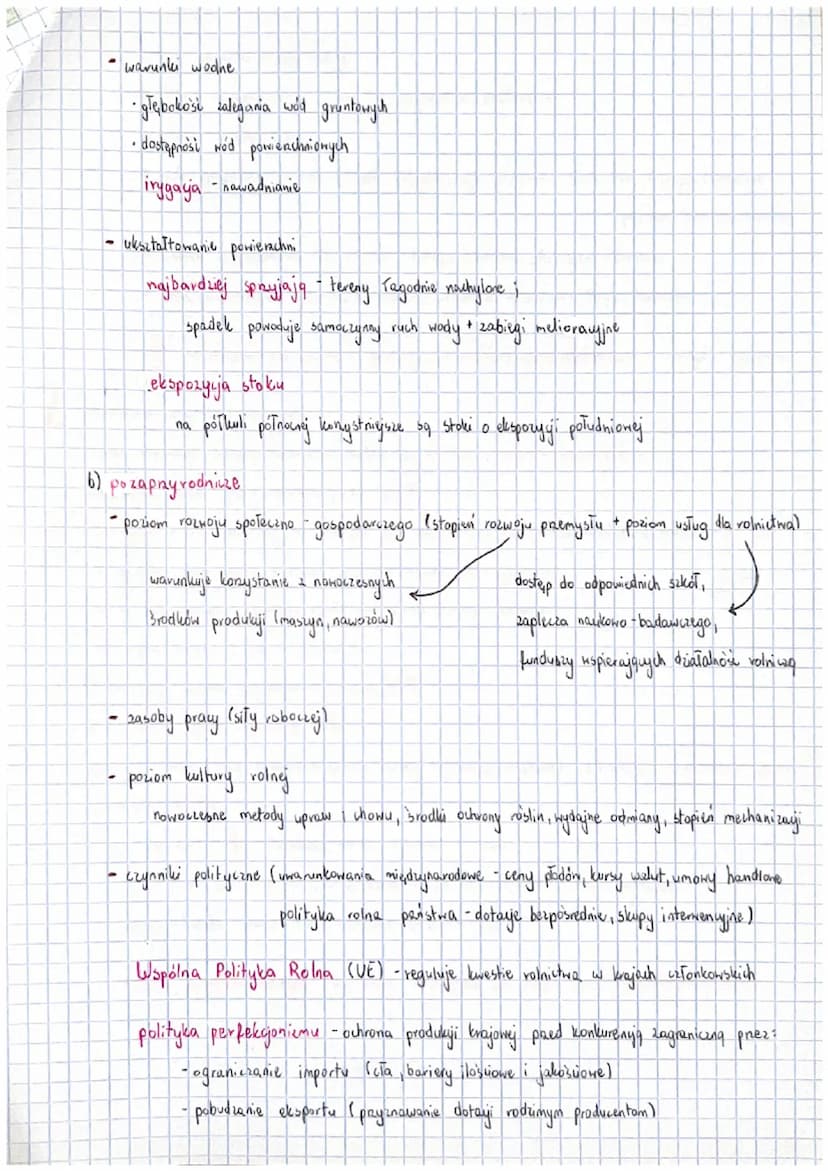 - warunki wodne
· głębokość zalegania wód gruntowych
· dostępność wód powierzchniowych
irygacja - nawadnianie
- ukształtowanie powierzchni
najbardziej sprzyjają - tereny łagodnie nachylone ;
spadek powoduje samoczynny ruch wody + zabiegi melioracyjne
ekspozycja stoku
na półkuli północnej korzystniejsze są stoki o ekspozycji południowej
b) pozaprzyrodnicze
- poziom rozwoju społeczno - gospodarczego (stopień rozwoju przemysłu + poziom usług dla rolnictwa)
warunkuje korzystanie z nowoczesnych
środków produkcji (maszyn, nawozów)
dostęp do odpowiednich szkół,
zaplecza naukowo - badawczego,
funduszy wspierających działalność rolniczą
- zasoby pracy (siły roboczej)
- poziom kultury rolnej
nowoczesne metody upraw i chowu, środki ochrony roślin, wydajne odmiany, stopień mechanizacji
- czynniki polityczne (uwarunkowania międzynarodowe - ceny płodów, kursy walut, umowy handlowe
polityka rolna państwa - dotacje bezpośrednie, skupy interwencyjne)
Wspólna Polityka Rolna (UE) - reguluje kwestie rolnictwa w krajach członkowskich
polityka perfekcjonizmu - ochrona produkcji krajowej przed konkurencją zagraniczną przez:
- ograniczanie importu (cła, bariery ilościowe i jakościowe)
- pobudzanie eksportu (przyznawanie dotacji rodzimym producentom)